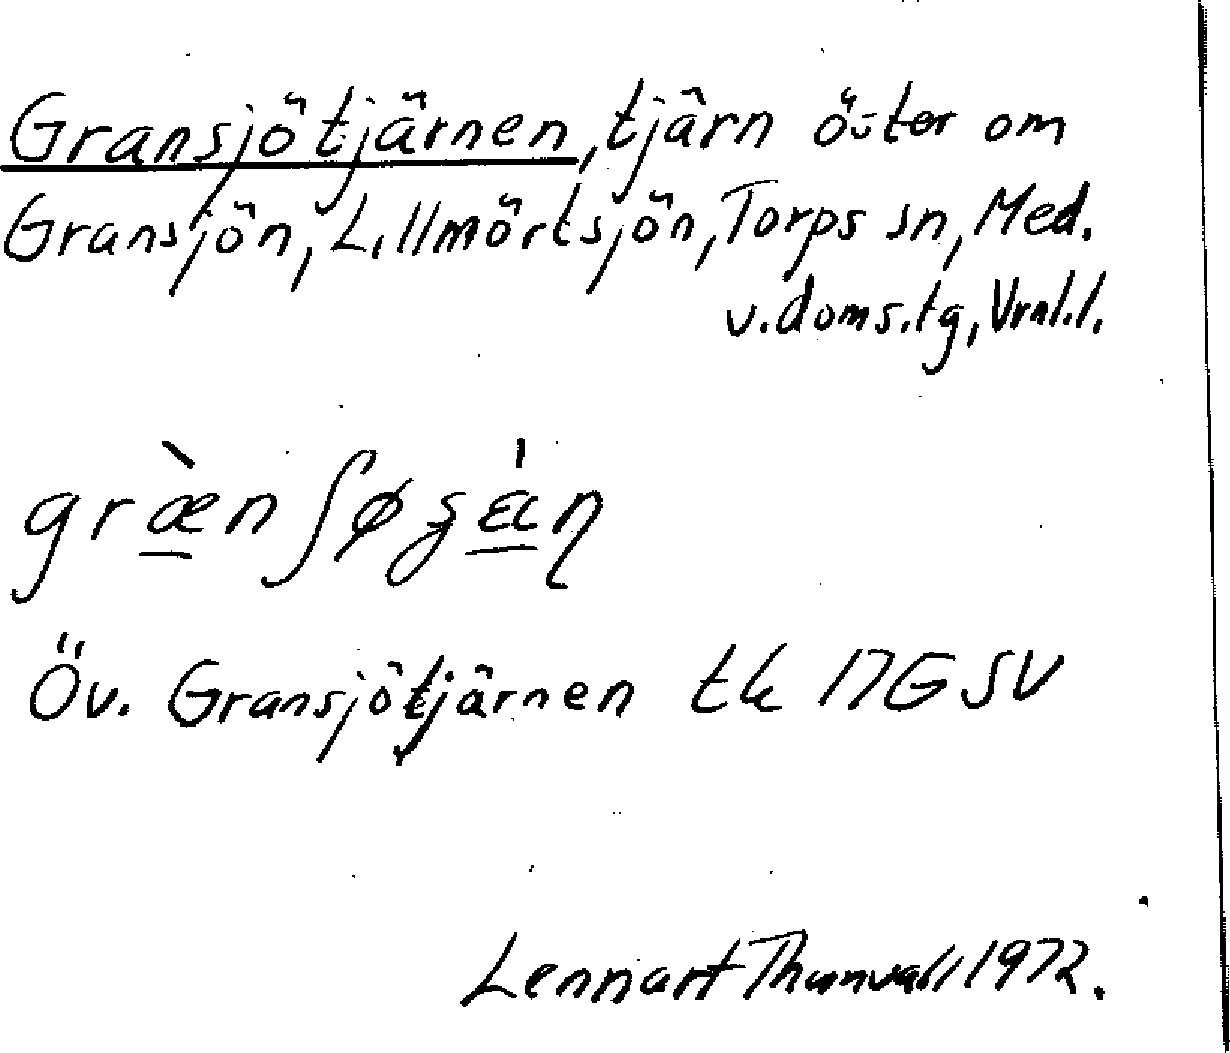 Gransjötjärnen, tjärn öster om
Gransjön, Lillmörtsjön, Torps sn, Med.
v. doms. tg, Vrnl. l.
græ̀nʃøʒɛán
Öv. Gransjötjärnen tk 17G SV
Lennart Thunvall 1972.